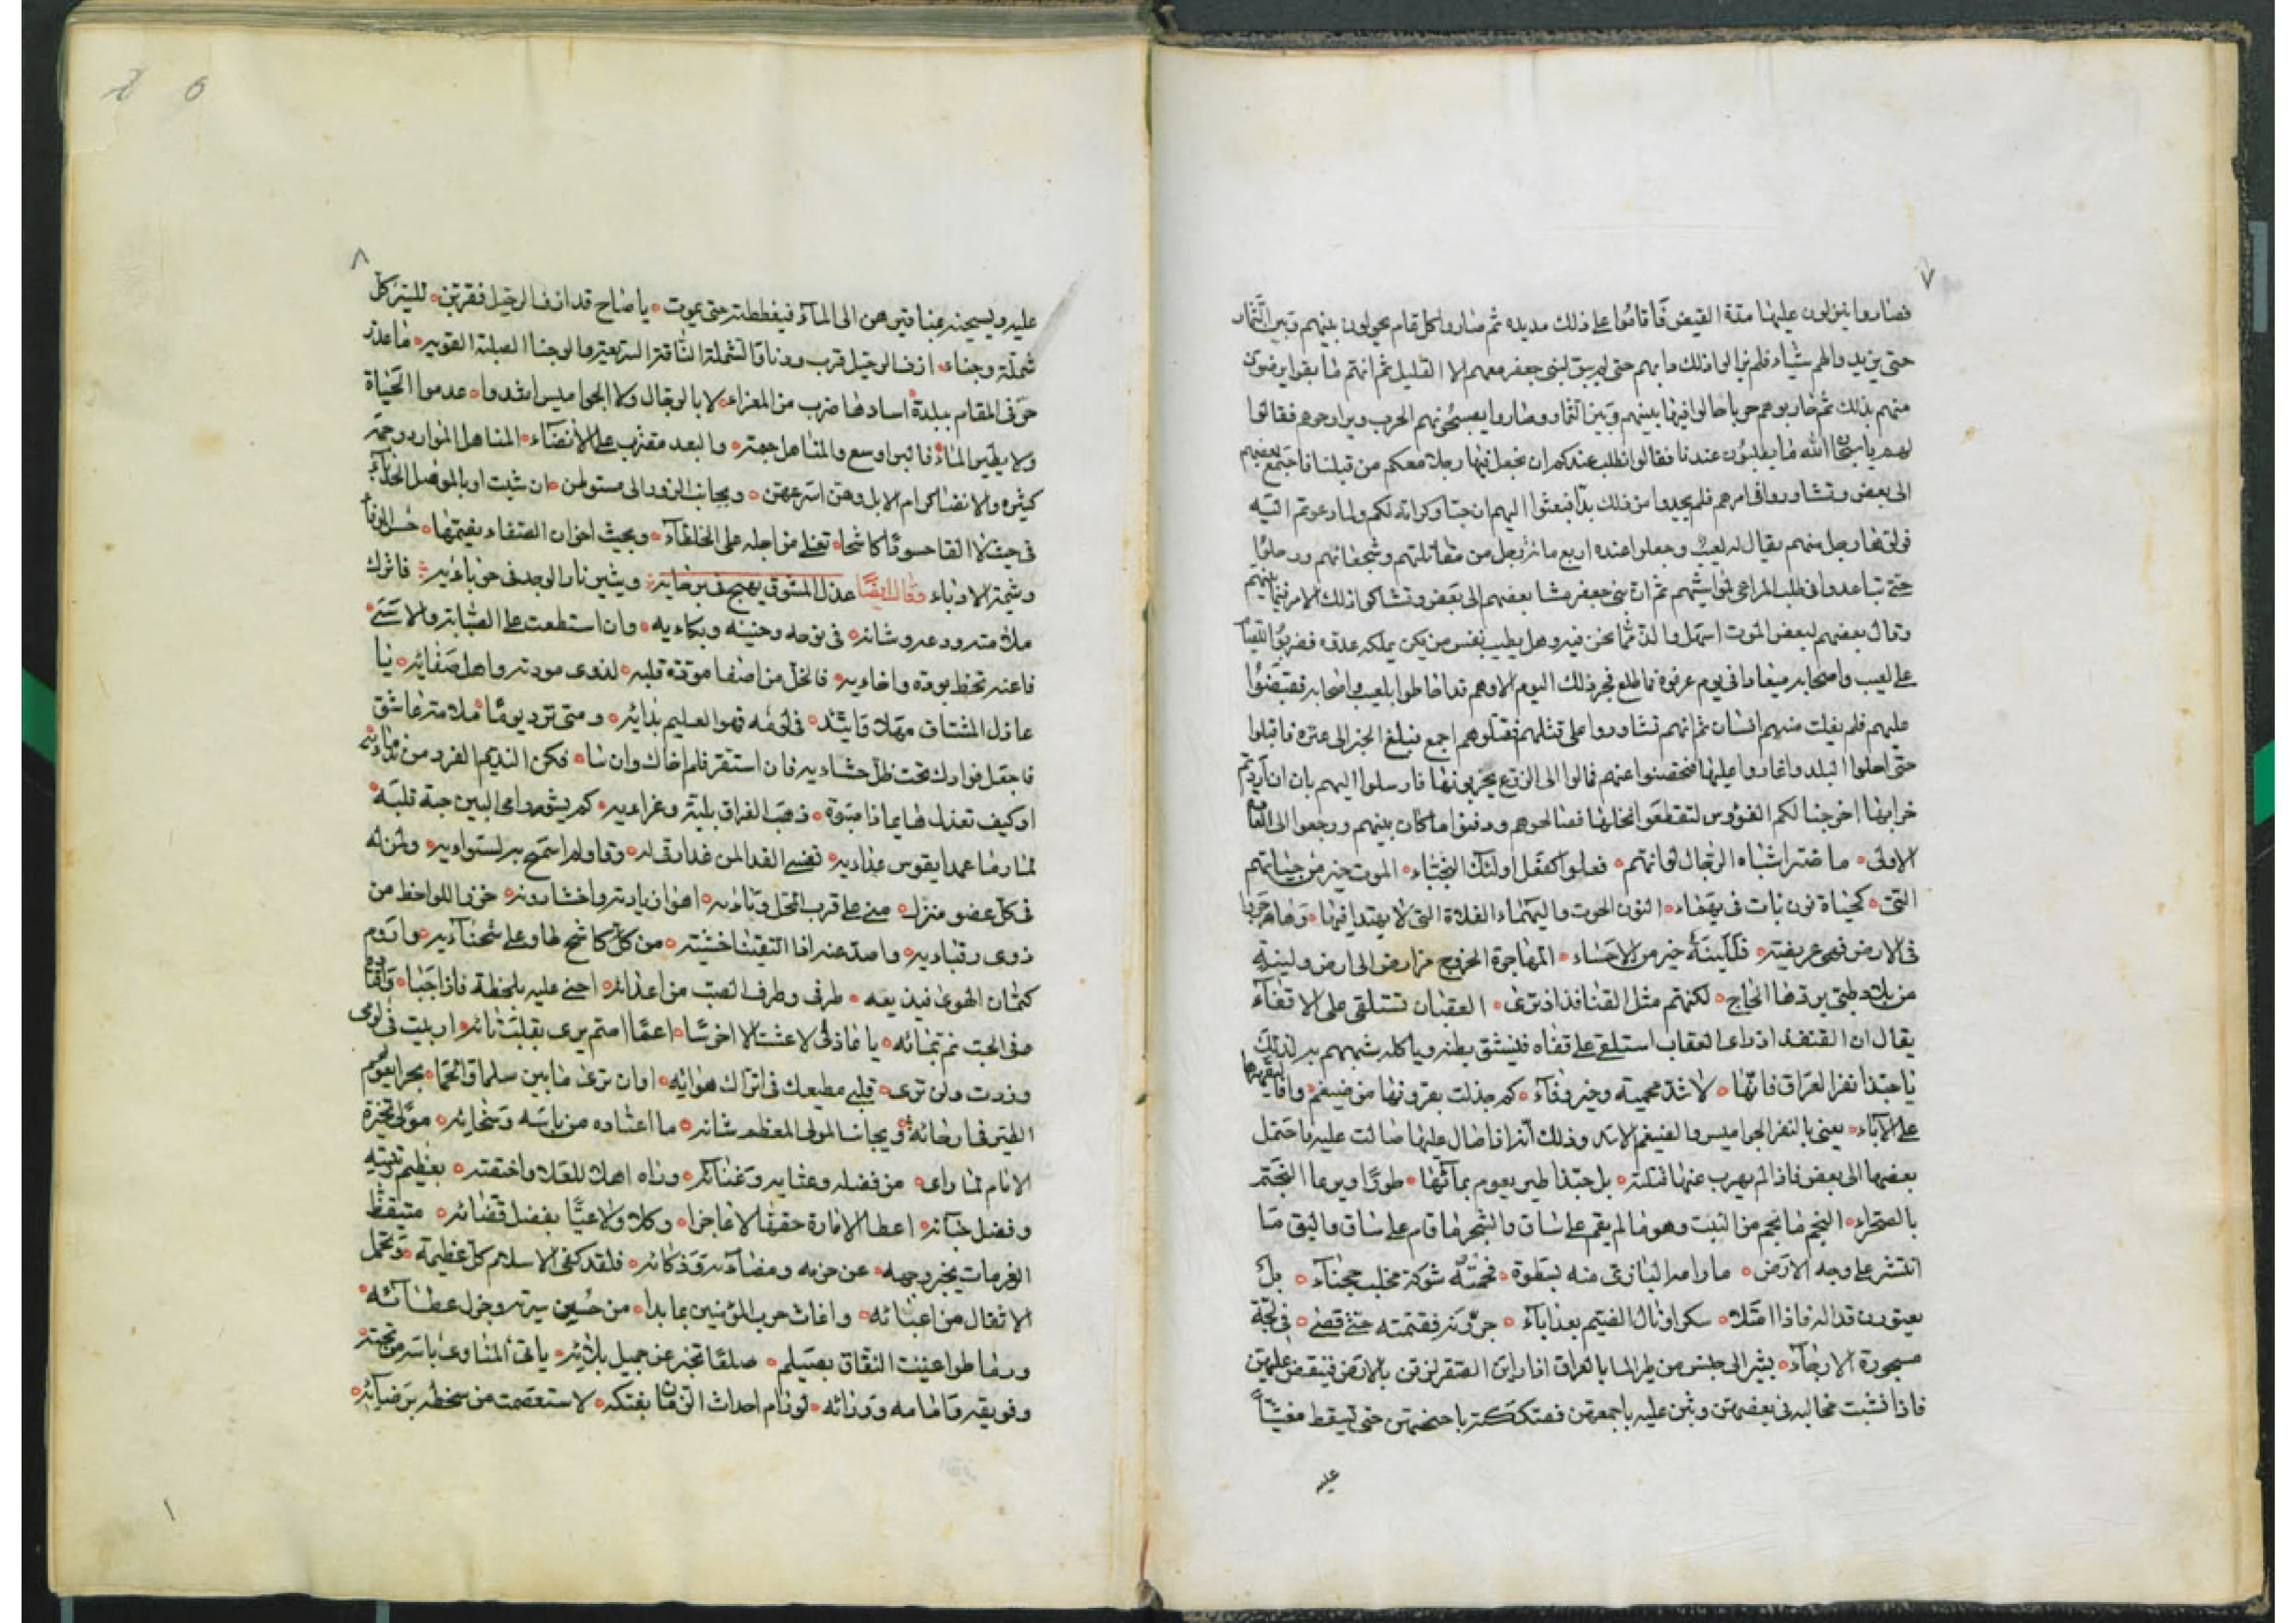 ٧
فصاروا ينزلون عليها مدة القيض فاقاموا على ذلك مديده ثم صاروا كل قام يحولون بينهم وبين الثمار
حتى يزيدوا لهم شياء فلم يزالوا ذلك دابهم حتى لم يبق لبنى جعفر معهم الا القليل ثم انهم ما بقوا يرضون
منهم بذلك ثم حاربوهم حربا حالوا فيها بينهم وبين الثمار وصاروا يصبحونهم الحرب ويراوحوهم فقالوا
لهم يا سبحان الله ما يطلبون عندنا فقالوا نطلب عندكم ان نجعل فيها رجلا معكم من قبلنا فاجتمع بعضهم
الى بعض وتشاوروا فى امرهم فلم يجدوا من ذلك بدا فبعثوا اليهم ان حبا وكرامة لكم ولما دعوتم اليه
فولوا رجل منهم يقال له لعيب وجعلوا عنده اربع مائة رجل من مقاتلتهم وشجعانهم ورحلوا
حتى تباعدوا فى طلب المراعى لمواشيهم ثم ان بنى جعفر مشا بعضهم الى بعض وتشاكوا ذلك الامر فيما بينهم
وقال بعضهم لبعض الموت اسهل والذ مما نحن فيه وهل يطيب نفس من يكن يملكه عدوه فضربوا
على لعيب واصحابه ميعادا فى يوم عرفوه فما طلع فجر ذلك اليوم الا وهم قد احاطوا بلعيب واصحابه فقبضوا
عليهم فلم يفلت منهم انسان ثم انهم تشاوروا على قتلهم فقتلوهم اجمع فبلغ الخبر الى عنزه فاقبلوا
حتى احلوا البلد واغاروا عليها فتحصنوا عنهم فمالوا الى الزرع يخربونها فارسلوا اليهم بان ان اردتم
خرابها اخرجنا لكم الفؤوس لتقطعوا نخلها فصالحوهم ودفنوا ما كان بينهم ورجعوا الى القاع
الاولى ما ضر اشباه الرجال لو انهم فعلوا كفعل اولئك النجباء الموت خير من حياتهم
التى كحياة نون بات فى يهماء النون الحوت واليهماء الفلاة التى لا يهتدا فيها وهاجر
فى الارض فهى عريضة فللينة خير من الاحساء المهاجرة الخروج من ارض الى ارض ولينه
من بلاد طى يردها الحاج لكنهم مثل القنافذ اذ ترى العقبان تستلقى على الاقفاء
يقال ان القنفذ اذا راى العقاب استلقى على قفاه فينشق بطنه وياكله شبههم به لذلك
يا حبذا نفر العراق فانها لاشد محمية وخير وفاء كم جذلت بقرونها من ضيغم
على الاباء يعنى بالنفر الجواميس والضيغم الاسد وذلك انه اذا صال عليها صالت عليه باحتمل
بعضها الى بعض فاذا لم يهرب عنها قتلته بل حبذا طير يعوم بمائها طورا ويرعا النجم
بالصحراء النجم ما نجم من النبت وهو ما لم يقم على ساق والشجر ما قام على ساق
انتشر على وجه الارض ما رامه البازى منه لسطوة نحمته شوكة مخلب حجناء بل
يعتورن قداله فاذا امتلا سكرا ونال الضيم بعد اباء جررنه فقمته حتى قضى فى لجة
مسجورة الارجاء يشير الى جنس من طير الما بالعراق اذا راى الصقر لزقن بالارض فينقض عليهن
فاذا نشبت مخالبه فى بعضهن وثبن عليه باجمعهن فصتككته باجنحتهن حتى يسقط مغشيا
عليه
٨
عليه ويسحبنه بمناقيرهن الى الماء فيغططنه حتى يموت يا صاح قد ازف الرحيل فقربن للسير كل
شملة وجناء ازف الرحيل قرب ودنا والشملة الناقة السريعة والوجنا الصلبة القوية ما عذر
حر فى المقام ببلدة اسادها ضرب من المعزاء لا بالوجال ولا الجواميس اقتدوا عدموا الحياة
ولا بطير الماء فالبر اوسع والمناهل جمة والبعد مقترب على الانضاء المناهل الموارد وجمة
كثيره والانضا كرام الابل وهن اسرعهن وبجانب الزورا لى مستوطن ان شئت او بالموصل الحدباء
فى حيث لا القا حسودا كاشحا تغلى مراجله على الخلطاء وبحيث اخوان الصفاء يضمها حسن الوفا
وشيمة الادباء وقال ايضا عذل المشوق يهيج فى برحايه ويثير نار الوجد فى حوباءيه فاترك
ملامته ودعه وشانه فى نوحه وحنينه وبكاءيه وان استطعت على الصبابة والاسى
فاعنه تحظ بوده واخاءيه فالخل من اصفا مودة قلبه لذوى مودته واهل صفائه يا
عاذل المشتاق مهلا واتئد فى لومه فهو العليم بدائه ومتى ترد يوما ملامة عاشق
فاجعل فوادك تحت ظل حشاءيه فان استقر فلم اخاك وان نبا فكن النديم الفرد من ندمائه
او كيف تعذل هايما ذا صبوة ذهب الفراق بلبه وعزاءيه كم يشو رامى البين حبة قلبه
لما رما عمدا بقوس عداءيه نفسى الفدا لمن غدا رقى له وفداوه اسمح به لسواءيه ولمن له
فى كل عضو منزل منى على قرب المحل وناءيه اهوا زيارته واخشا دونه خزر اللواحظ من
ذوى رقباءيه واصد عنه اذا التقينا خشية من كل كاشح طاو على شحناءيه واروم
كتمان الهوى فيذيعه طرفى وطرف الصب من اعدائه اجنى عليه بلحظة فاذا جنا
صفى الحب ثم تمنائه يا عاذلى لا عشت الا اخرسا اعما اصم يرى بقلب تائه او بلت فى لومى
وزدت ولن ترى قلبى مطيعك فى اتراك هوائه او ان ترى ما بين سلما والحما بحرا يعوم
الطير فى ارجائه وبجانب المولى المعظم شانه ما اعتاده من باسه وسخائه مولى تحيزه
الانام لما راى من فضله وعنايه وغنائه وراه اهلا للعلا واختصه بعظيم رتبته
وفضل حبائه اعطا الامارة حقها لا عاجزا وكلا ولا عيا بفضل قضائه متيقظ
العزمات يخبر وجهه عن حزمه ومضاءه وذكائه فلقد كفى الاسلام كل عظيمة وتحمل
الاثقال من اعبائه واغاث حرب المؤمنين بما بدا من حسن سيرته وجزل عطائه
ورما طواعيت النفاق بصيلم صلعا تخبر عن جميل بلائه ياتى المناوى باسه من تحته
وفويقه وامامه وورائه لو رام احداث الزمان بفتكه لاستعصمت من سخطه برضائه